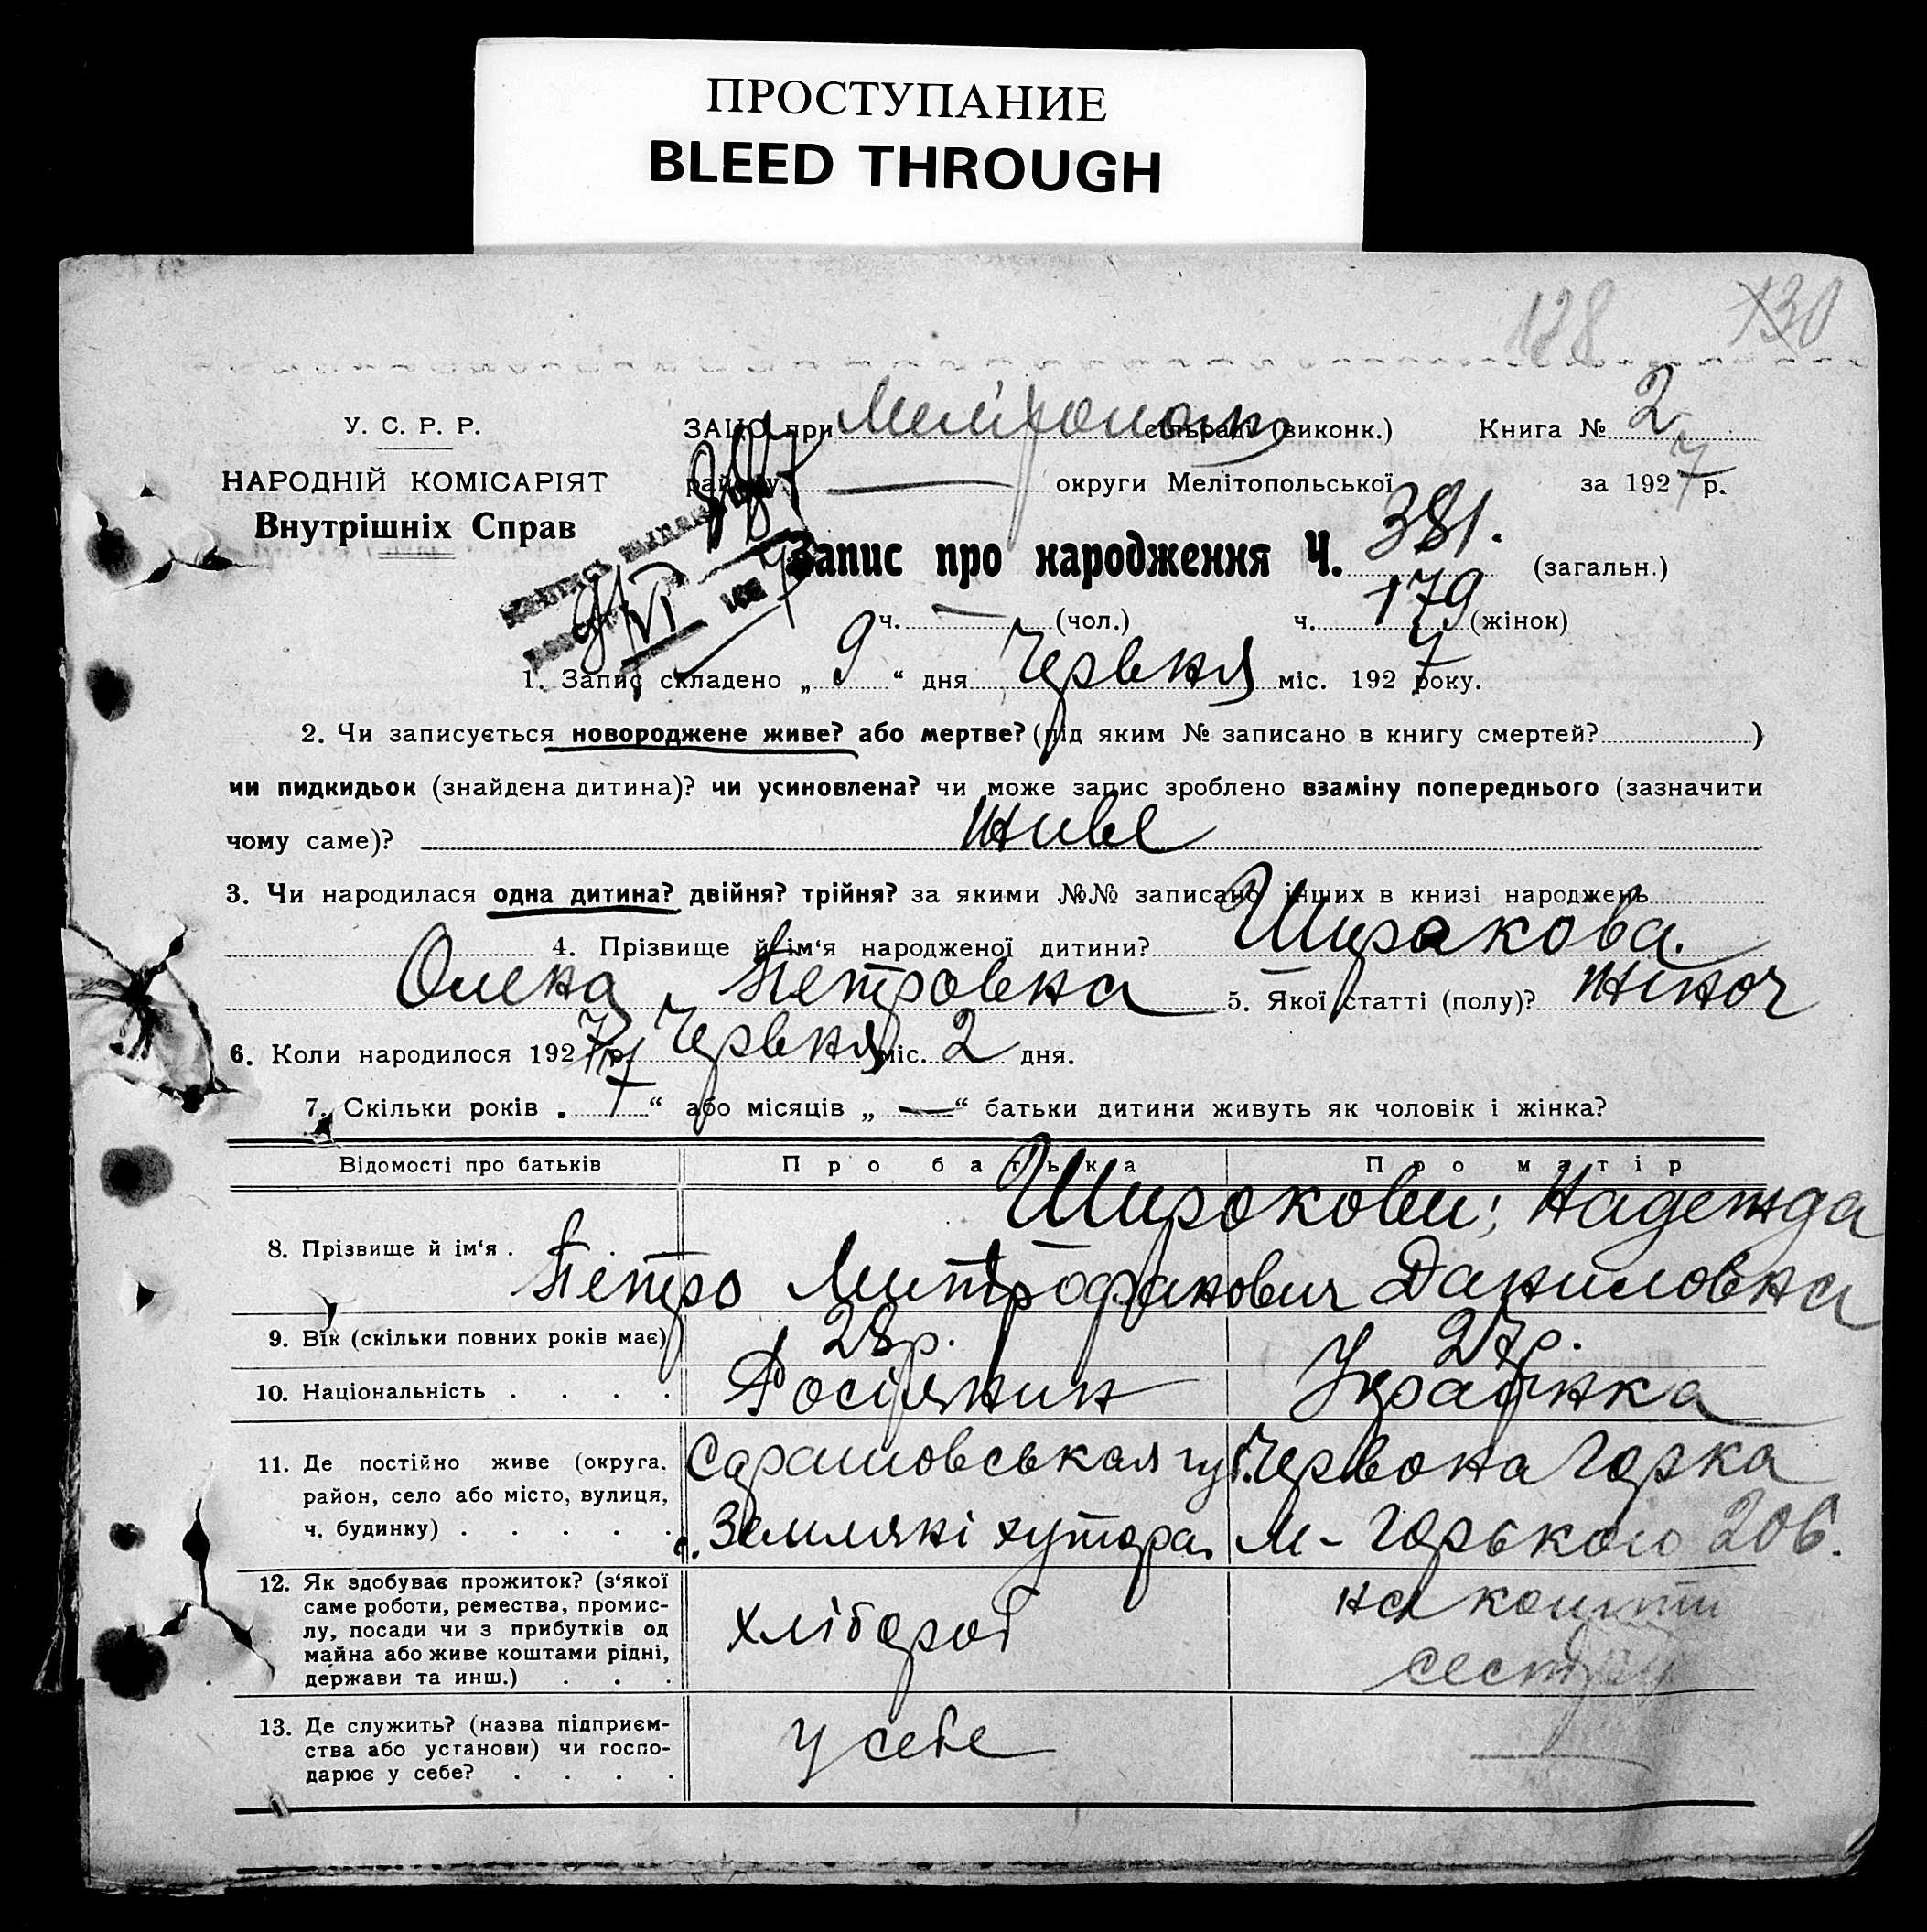 ПРОСТУПАНИЕ
BLEED THROUGH
128 130
У. С. Р. Р. ЗАЦС при сільраді (виконк.) Книга № 2
НАРОДНІЙ КОМІСАРІЯТ району — округи Мелітопольської за 1927 р.
Внутрішніх Справ
Запис про народження Ч. 381. (загальн.)
ч. — (чол.) ч. 179 (жінок)
1. Запис складено „ 9 “ дня Червня міс. 1927 року.
2. Чи записується новороджене живе? або мертве? (під яким № записано в книгу смертей? )
чи пидкидьок (знайдена дитина)? чи усиновлена? чи може запис зроблено взаміну попереднього (зазначити
чому саме)? живе
3. Чи народилася одна дитина? двійня? трійня? за якими №№ записано інших в книзі народжень
4. Прізвище й ім‘я народженої дитини? Широкова.
Олена Петровна 5. Якої статті (полу)? жіноч
6. Коли народилося 1927 р. Червня міс. 2 дня.
7. Скільки років „ 7 “ або місяців „ — “ батьки дитини живуть як чоловік і жінка?
Відомості про батьків Про батька Про матір
Широкови; Надежда
8. Прізвище й ім‘я . Петро Митрофанович Даниловна
9. Вік (скільки повних років має) 28 р. 27 р.
10. Національність . . . . Росіянин Українка
11. Де постійно живе (округа, Саратовськая гу Червона Горка
район, село або місто, вулиця,
ч. будинку) . . . . . Земляні хутора. М-Горького 206.
12. Як здобуває прожиток? (з‘якої
саме роботи, ремества, промис-
лу, посади чи з прибутків од
майна або живе коштами рідні,
держави та инш.) . . . хлібороб на кошти
сестри
13. Де служить? (назва підприєм-
ства або установи) чи госпо-
дарює у себе? . . . . у себе —